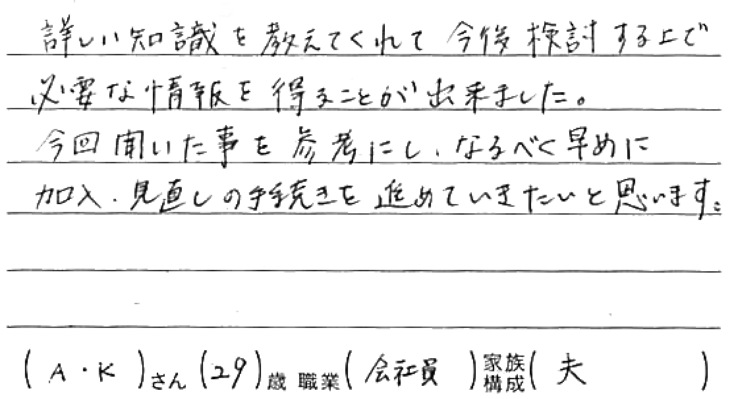 詳しい知識を教えてくれて今後検討する上で
必要な情報を得ることが出来ました。
今回聞いた事を参考にし、なるべく早めに
加入・見直しの手続きを進めていきたいと思います。
(A・K)さん(29)歳 職業(会社員)家族構成(夫)